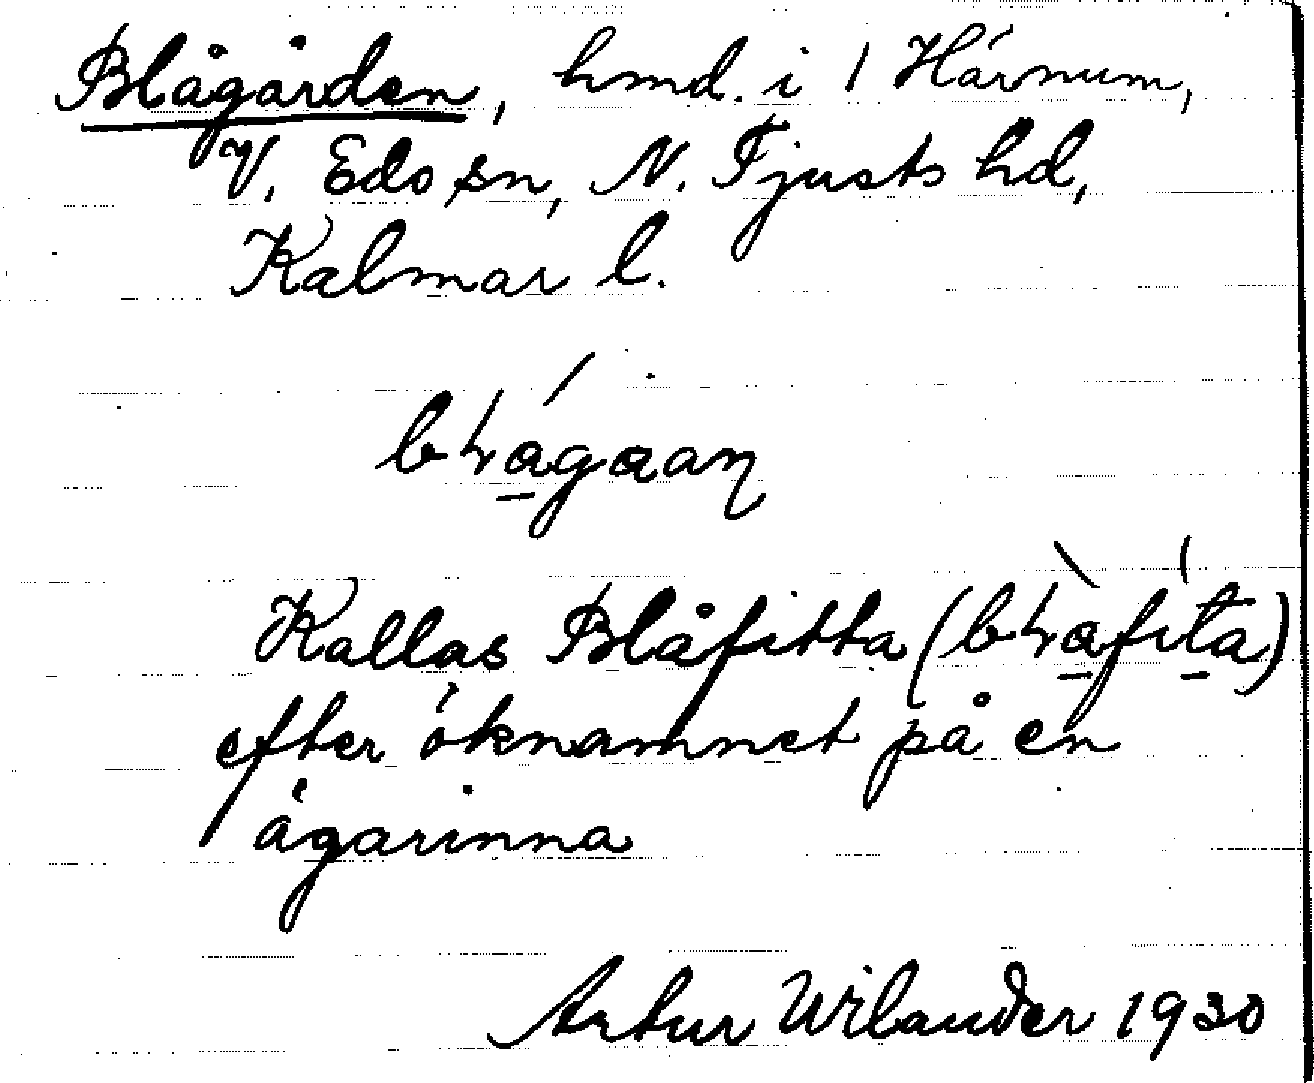 Blågården, hmd. i 1 Härnum,
V. Eds sn, N. Tjusts hd,
Kalmar l.
Kallas Blåfitta (
efter öknamnet på en
ägarinna
Artur Wilander 1930